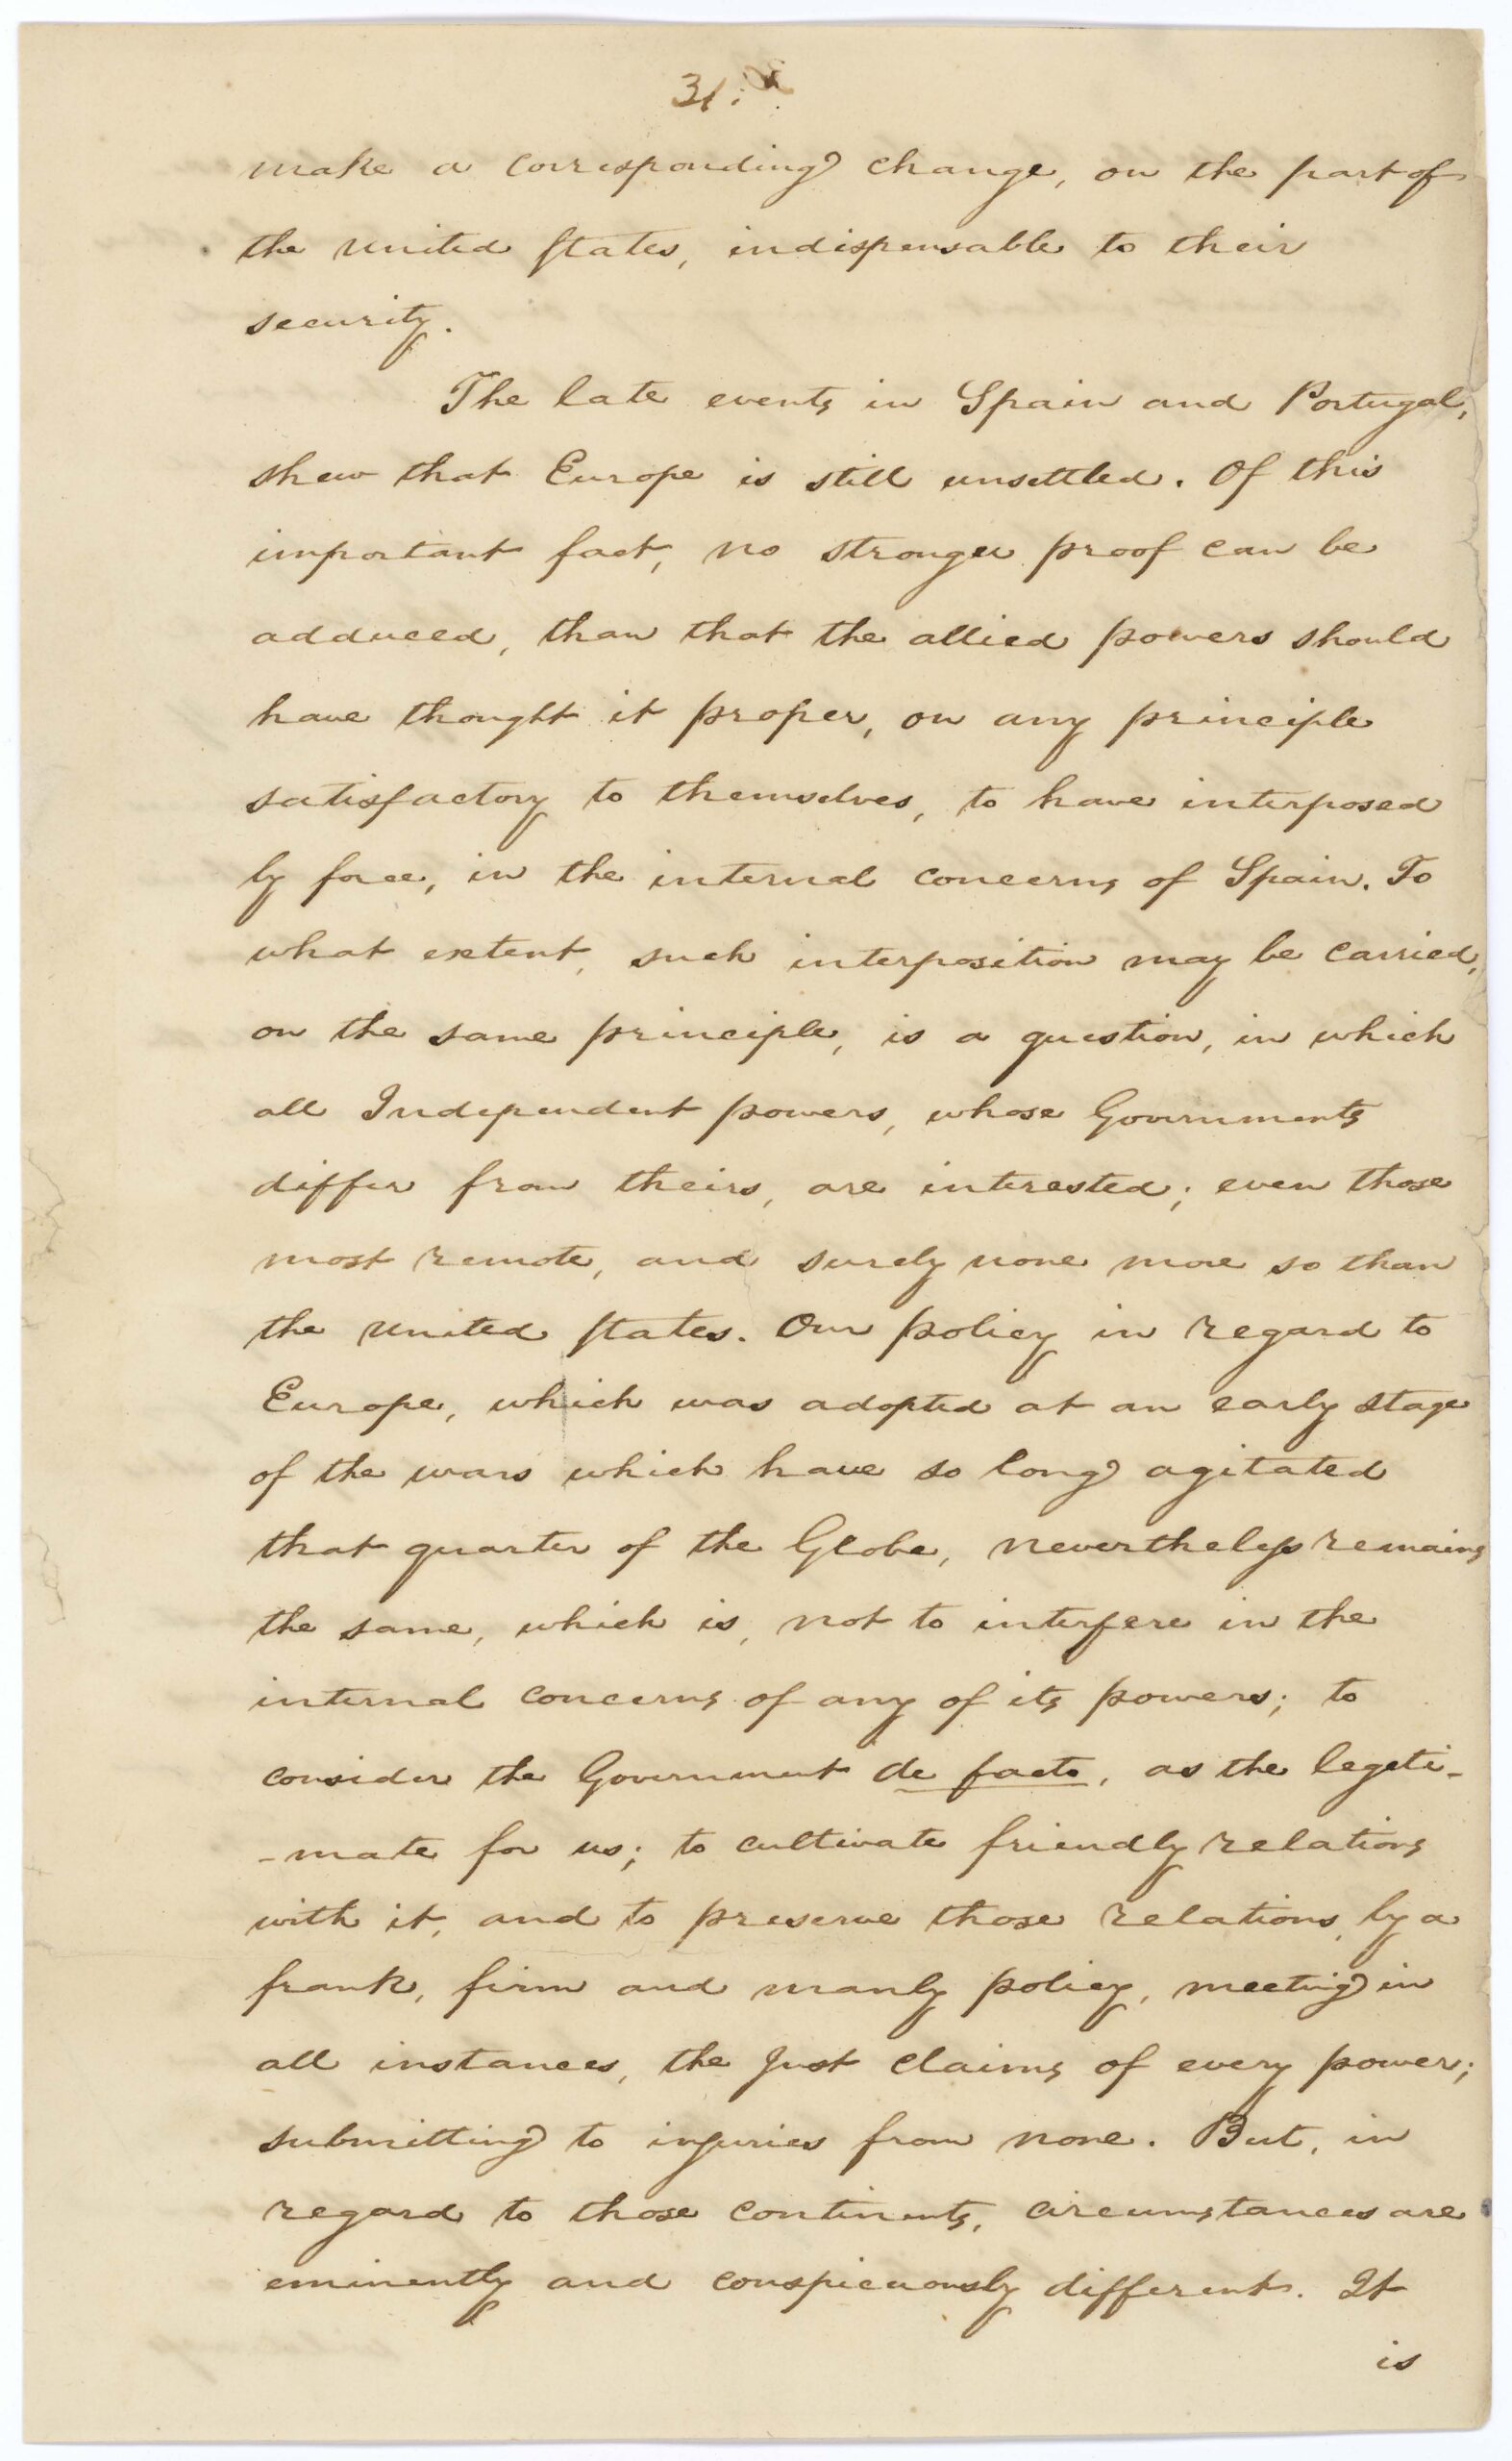 31.
make a corresponding change, on the part of
the United States, indispensable to their
security.
The late events in Spain and Portugal,
shew that Europe is still unsettled. Of this
important fact, no stronger proof can be
adduced, than that the allied powers should
have thought it proper, on any principle
satisfactory to themselves, to have interposed
by force, in the internal concerns of Spain. To
what extent, such interposition may be carried,
on the same principle, is a question, in which
all Independent powers, whose Governments
differ from theirs, are interested; even those
most remote, and surely none more so than
the United States. Our policy in regard to
Europe, which was adopted at an early stage
of the wars which have so long agitated
that quarter of the Globe, nevertheless remains
the same, which is, not to interfere in the
internal concerns of any of its powers; to
consider the Government de facto, as the legiti-
-mate for us; to cultivate friendly relations
with it, and to preserve those relations, by a
frank, firm and manly policy, meeting in
all instances, the just claims of every power;
submitting to injuries from none. But, in
regard to those continents, circumstances are
eminently and conspicuously different. It
is